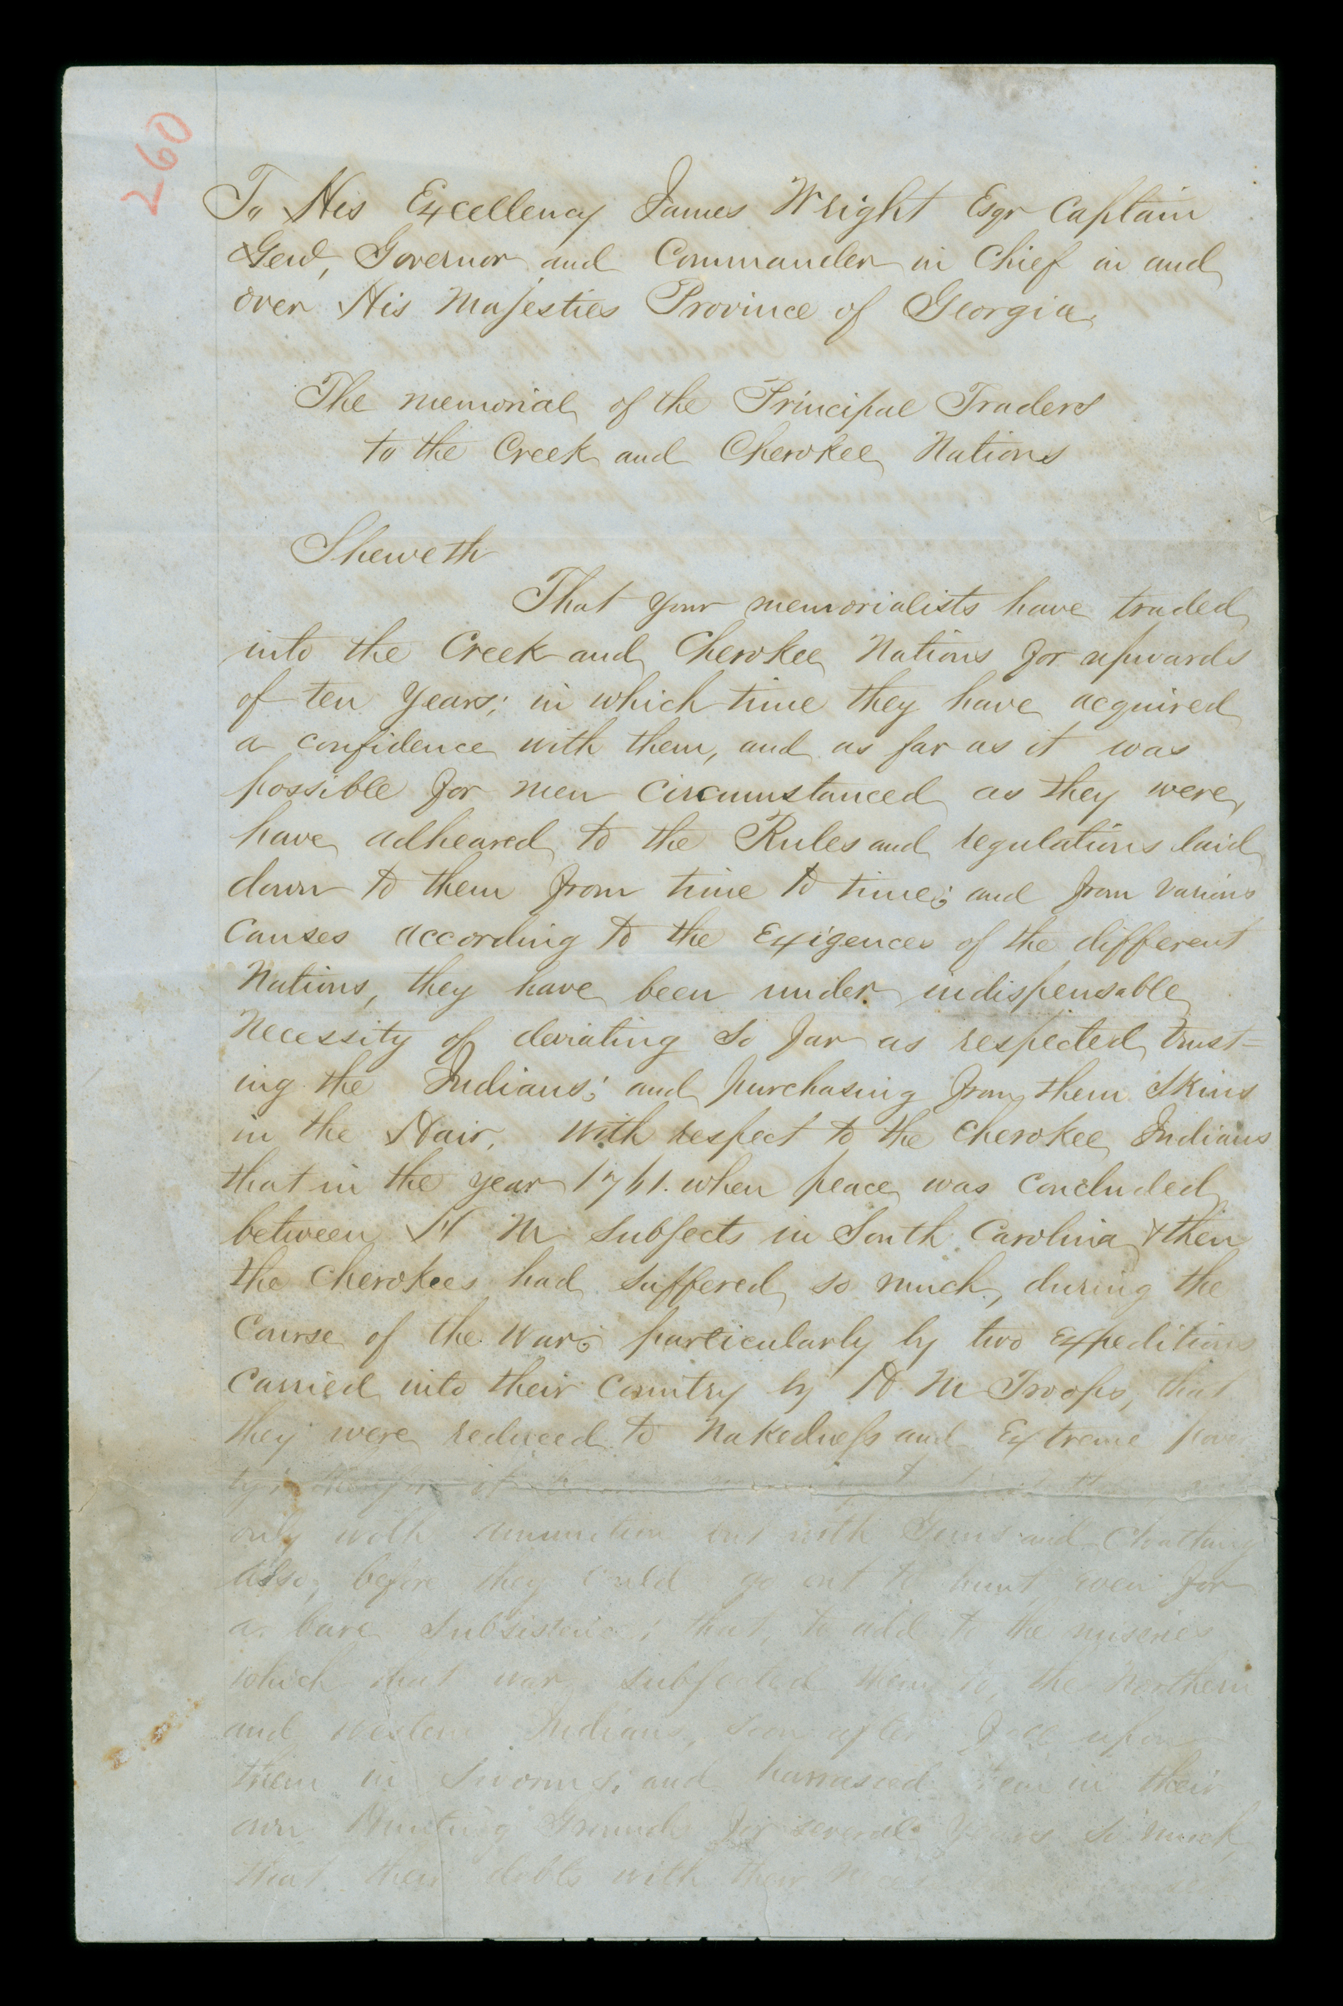 260
To His Excellency James Wright Esqr Captain
Genl, Governor and Commander in Chief in and
over His Majesties Province of Georgia.
The memorial of the Principal Traders
to the Creek and Cherokee Nations
Sheweth
That your memorialists have traded
into the Creek and Cherokee Nations for upwards
of ten years; in which time they have acquired
a confidence with them, and as far as it was
possible for men circumstanced as they were,
have adheared to the Rules and regulations laid
down to them from time to time; and from various
Causes according to the Exigences of the different
Nations, they have been under indispensable
Necessity of deviating so far as respected trust=
ing the Indians; and purchasing from them Skins
in the Hair, With respect to the Cherokee Indians
that in the year 1761. when peace was concluded
between H M subjects in South Carolina & then
the Cherokees had suffered so much, during the
Course of the War; particularly by two Expeditions
Carried into their Country by H M Troops, that
they were reduced to Nakedness and Extreme pov
ty; therefore it
only with amunition but with Guns and Cloathing
also, before they could go out to hunt even for
a bare Subsistence; that, to add to the miseries
which that war subjected them to, the Northern
and western Indians, soon after fell upon
them in Swarms; and harrassed them in their
own Hunting Grounds for several Years so much,
that their debts with their